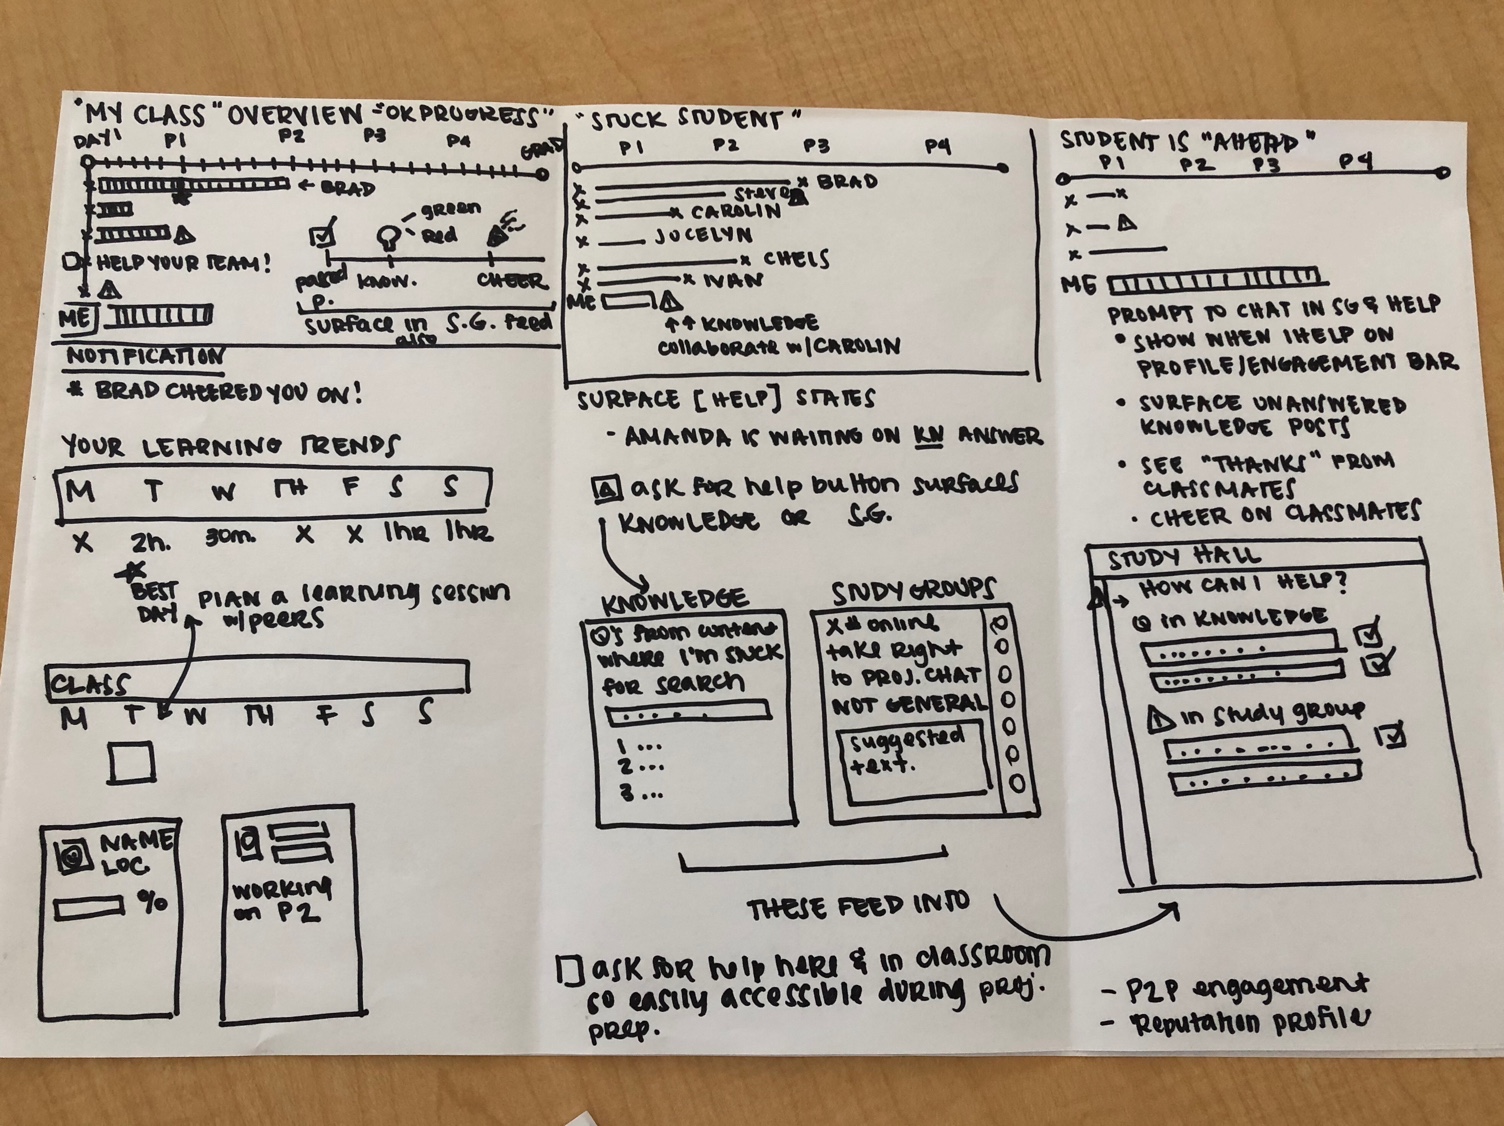 "MY CLASS" OVERVIEW - "OK PROGRESS"
DAY 1 P1 P2 P3 P4 GRAD
← BRAD
HELP YOUR TEAM!
ME
green
Red
passed P.
KNOW.
CHEER
SURFACE IN S.G. feed
also
NOTIFICATION
* BRAD CHEERED YOU ON!
YOUR LEARNING TRENDS
M T W TH F S S
X 2h. 30m. X X 1HR 1HR
BEST
DAY
PLAN a learning session
w/peers
CLASS
M T W TH F S S
NAME
LOC.
%
WORKING
on P2
"STUCK STUDENT"
P1 P2 P3 P4
X BRAD
Steve
X CAROLIN
X JOCELYN
X CHELS
X IVAN
ME
↑↑ KNOWLEDGE
collaborate w/CAROLIN
SURFACE [HELP] STATES
- AMANDA IS WAITING ON KN ANSWER
ask for help button surfaces
KNOWLEDGE OR S.G.
KNOWLEDGE
Q's from content
where I'm stuck
for search
1 ...
2 ...
3 ...
STUDY GROUPS
X # online
take Right
to PROJ. CHAT
NOT GENERAL
suggested
text.
THESE FEED INTO
ask for help here & in classroom
so easily accessible during proj.
prep.
STUDENT IS "AHEAD"
P1 P2 P3 P4
ME
PROMPT TO CHAT IN SG & HELP
• SHOW WHEN I HELP ON
PROFILE/ENGAGEMENT BAR
• SURFACE UNANSWERED
KNOWLEDGE POSTS
• SEE "THANKS" FROM
CLASSMATES
• CHEER ON CLASSMATES
STUDY HALL
→ HOW CAN I HELP?
Q in KNOWLEDGE
in study group
- P2P engagement
- Reputation profile